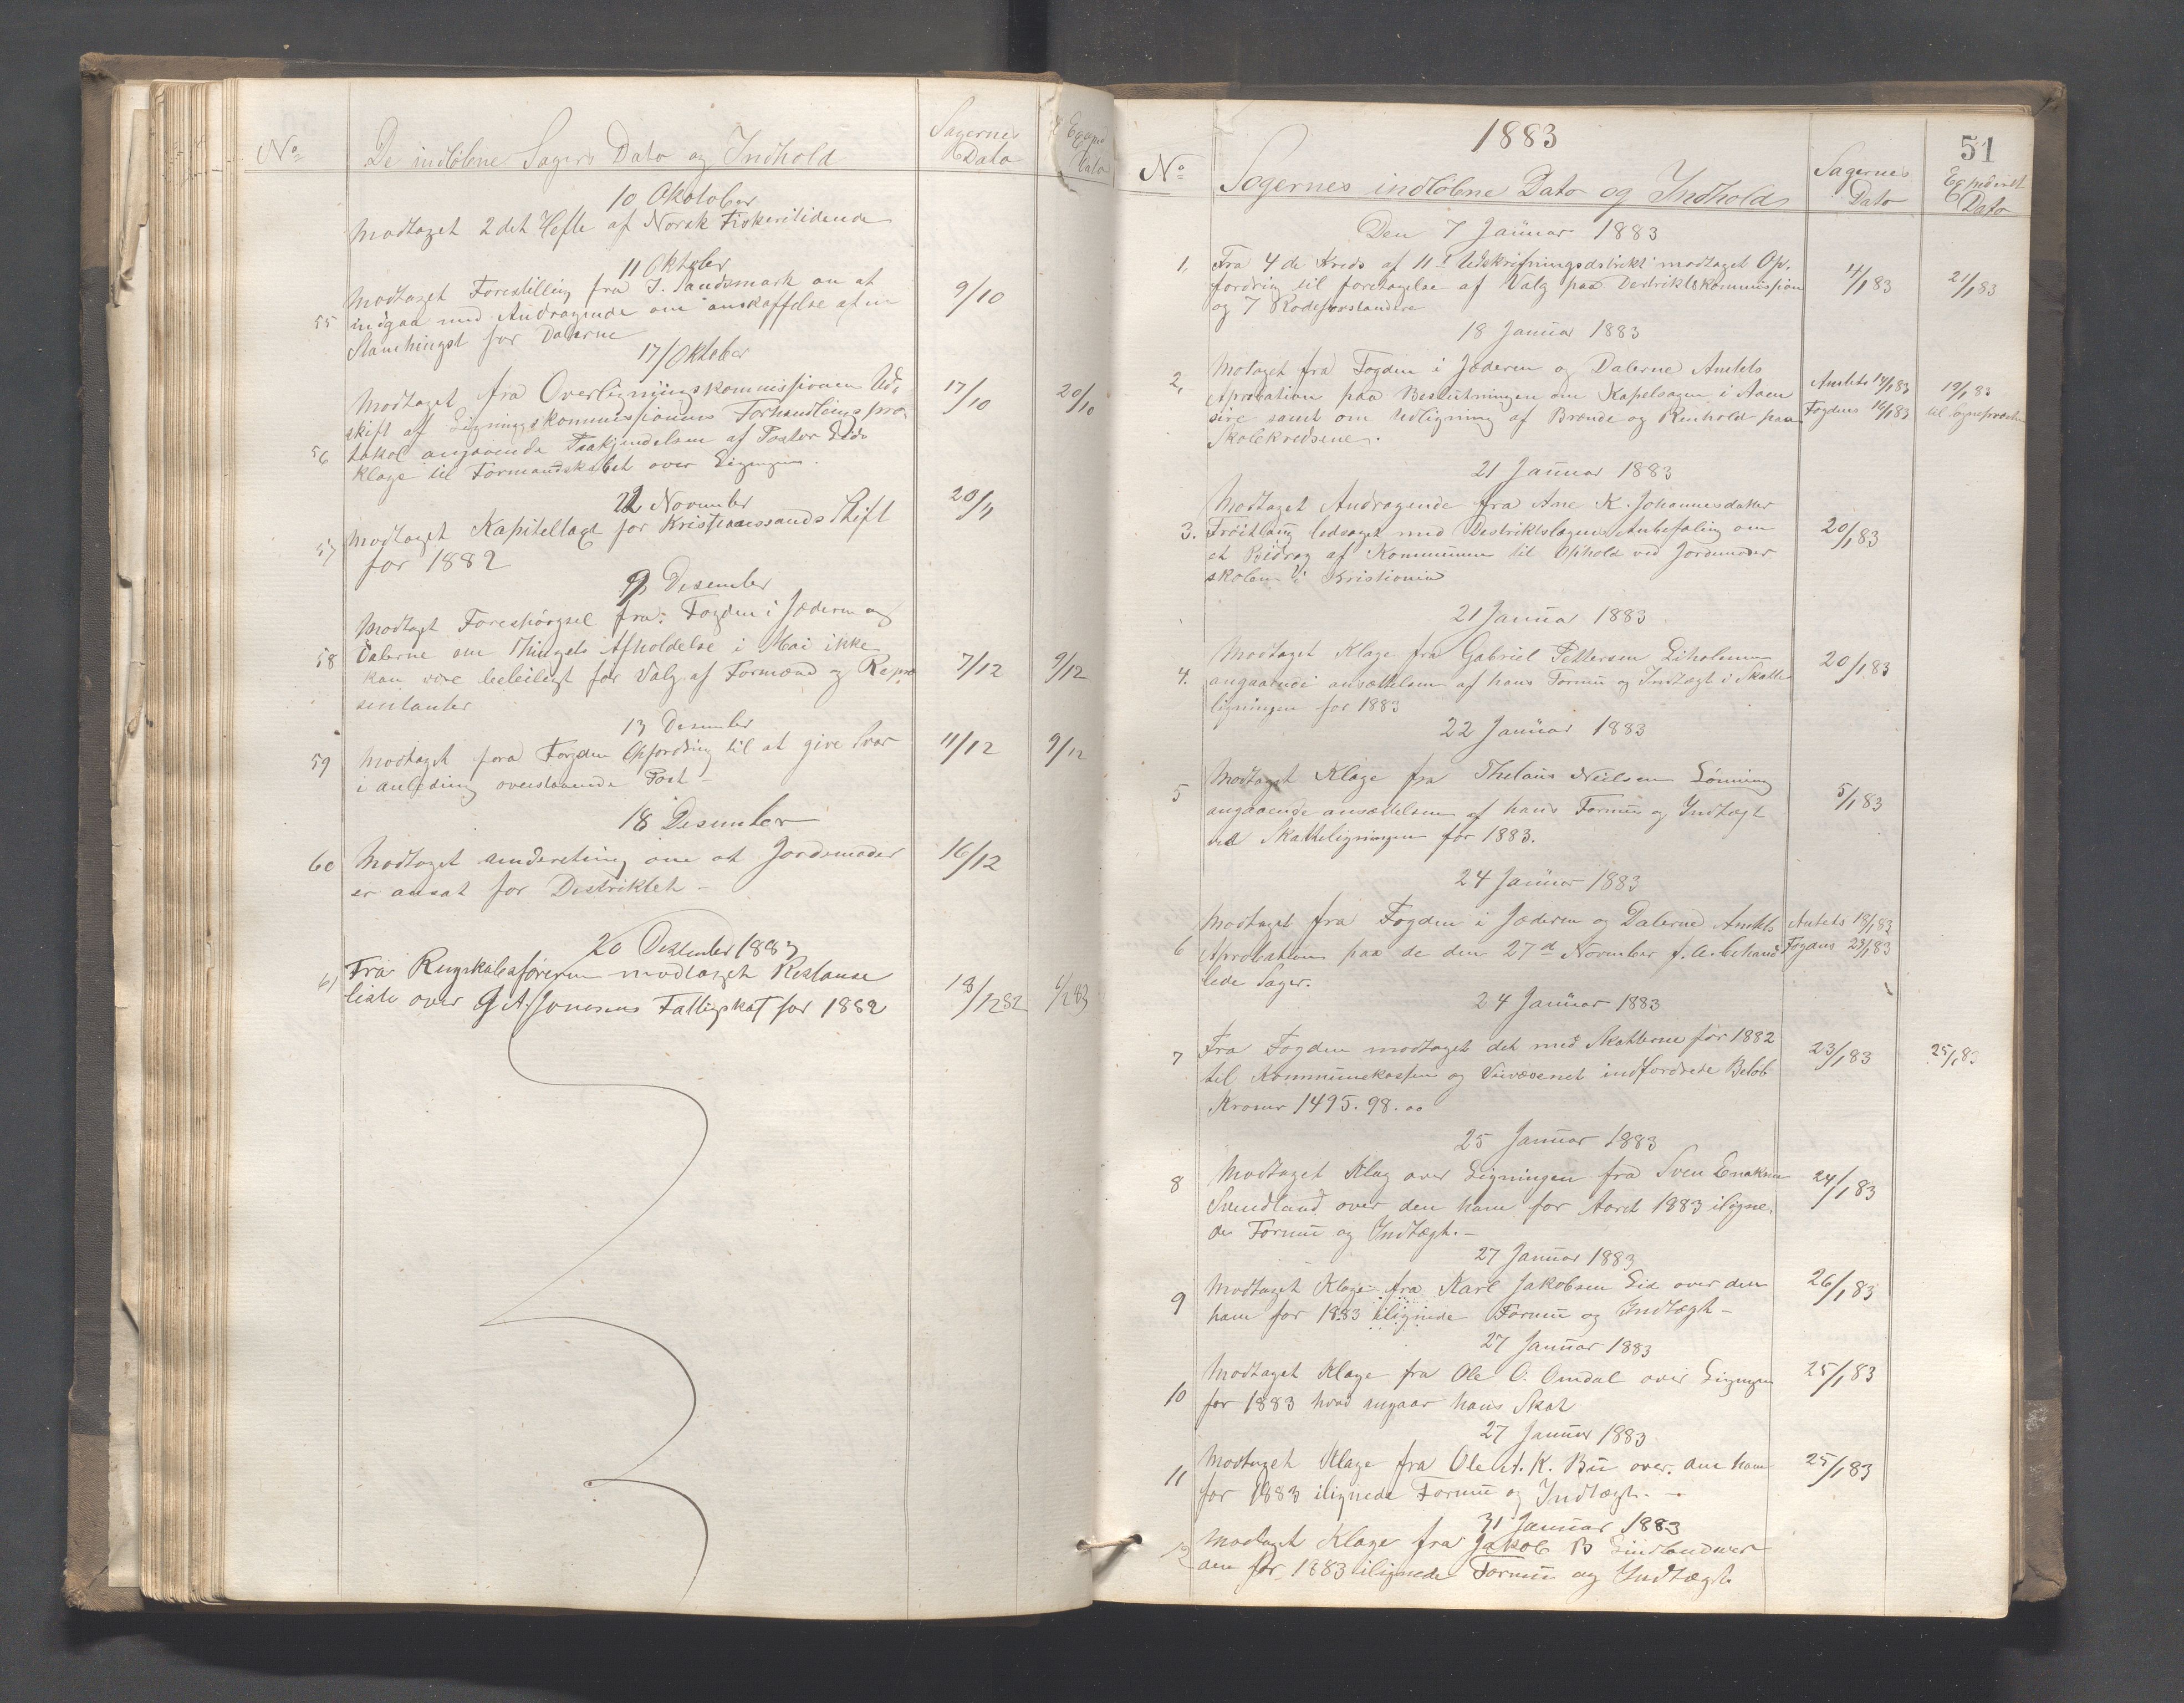 No De indløbne Sagers Dato og Indhold Sagernes Dato Exped Dato
10 Oktober
Modtaget 2det Hefte af Norsk Fiskeritidende
11 Oktober
Modtaget Forestilling fra J. Sandsmark om at
55 indgaa med Andragende om anskaffelse af en 9/10
Stamhingst for Dalerne
17/Oktober
Modtaget fra Overligningskommissionen Ud- 17/10 20/10
skift af Ligningskommissionens Forhandlingspro
56 tokol angaaende Paakjendelsen af Pastor
klage til Formandskabet over Ligningen.
22 November
57 Modtaget Kapiteltaxt for Kristianssands Stift 20/11
for 1882
9 Desember
Modtagt Forespørgsel fra: Fogden i Jæderen og
58 Dalerne om Thingets Afholdelse i Mai ikke
kan vire beleiligt for Valg af Formænd og Repræ 7/12 9/12
sentanter
13 Desember
59 Modtaget fora Fogden Opfordring til at give Svar 11/12 9/12
i anledning ovenstaaende Post –
18 Desember
60 Modtaget underetning om at Jordemoder 16/12
er ansat for Destriktet –
20 Desember 1883
61 Fra Regnskabsføreren modtaget Restanse
liste over G. A. Jonesens Fattigskat for 1882 18/12 82 1/83
1883
51
No Sagernes indløbne Dato og Indhold Sagernes Dato Expederet Dato
Den 7 Januar 1883
1, Fra 4de Kreds af 11te Udskrifningsdistrikt modtaget Op-
fordring til foretagelse af Valg paa Destriktskommission 4/1 83 21/1 83
og 7 Rodeforstandere
18 Januar 1883
2, Motaget fra Fogden i Jæderen og Dalerne Amtets
Aprobation paa Beslutningen om Kapelsagen i Aaen Amtets 13/1 83 19/1 83
sire samt om Udligning af Brænde og Renhold paa Fogdens 16/1 83 til Sognepræsten
Skolekredsene.
21 Januar 1883
Modtaget Andragende fra Ane K. Johannesdatter
3. Frøitlaug ledsaget med Destriktslægens Anbefaling om 20/1 83
et Bidrag af Kommunen til Ophold ved Jordemoder
skolen i Kristiania
21 Januar 1883
Modtaget Klage fra Gabriel Pettersen Liholmen
4. angaaende ansættelsen af hans Formue og Indtægt i Skatte 20/1 83
ligningen for 1883
22 Januar 1883
5 Modtaget Klage fra Thelaus Neilsen Lønning
angaaende ansættelsen af hans Formue og Indtægt 5/1 83
ved Skatteligningen for 1883.
24 Januar 1883
Modtaget fra Fogden i Jæderen og Dalerne Amtets Amtets 18/1 83
6 Aprobation paa de den 27de November f. A. behand Fogdens 23/1 83
lede Sager.
24 Januar 1883
7 Fra Fogden modtaget det med Skatterne for 1882 23/1 83 25/1 83
til Kommunekassen og Veivæsenet indfordrede Beløb
Kroner 1495.98. oo
25 Januar 1883
8 Modtaget Klag over Ligningen fra Sven Enaksen 24/1 83
Svendland over den ham for Aaret 1883 iligne-
de Formue og Indtægt. –
27 Januar 1883
9 Modtaget Klage fra Karl Jakobsen Eid over den 26/1 83
ham for 1883 ilignede Formue og Indtægt –
27 Januar 1883
10 Modtaget Klage fra Ole O. Omdal over Ligningen 25/1 83
for 1883 hvad angaar hans Skat
27 Januar 1883
11 Modtaget Klage fra Ole A. K. Bu over den ham 25/1 83
for 1883 ilignede Formue og Indtægt. –
31 Januar 1883
12 Modtaget Klage fra Jakob B over
den for 1883 ilignede Formue og Indtægt